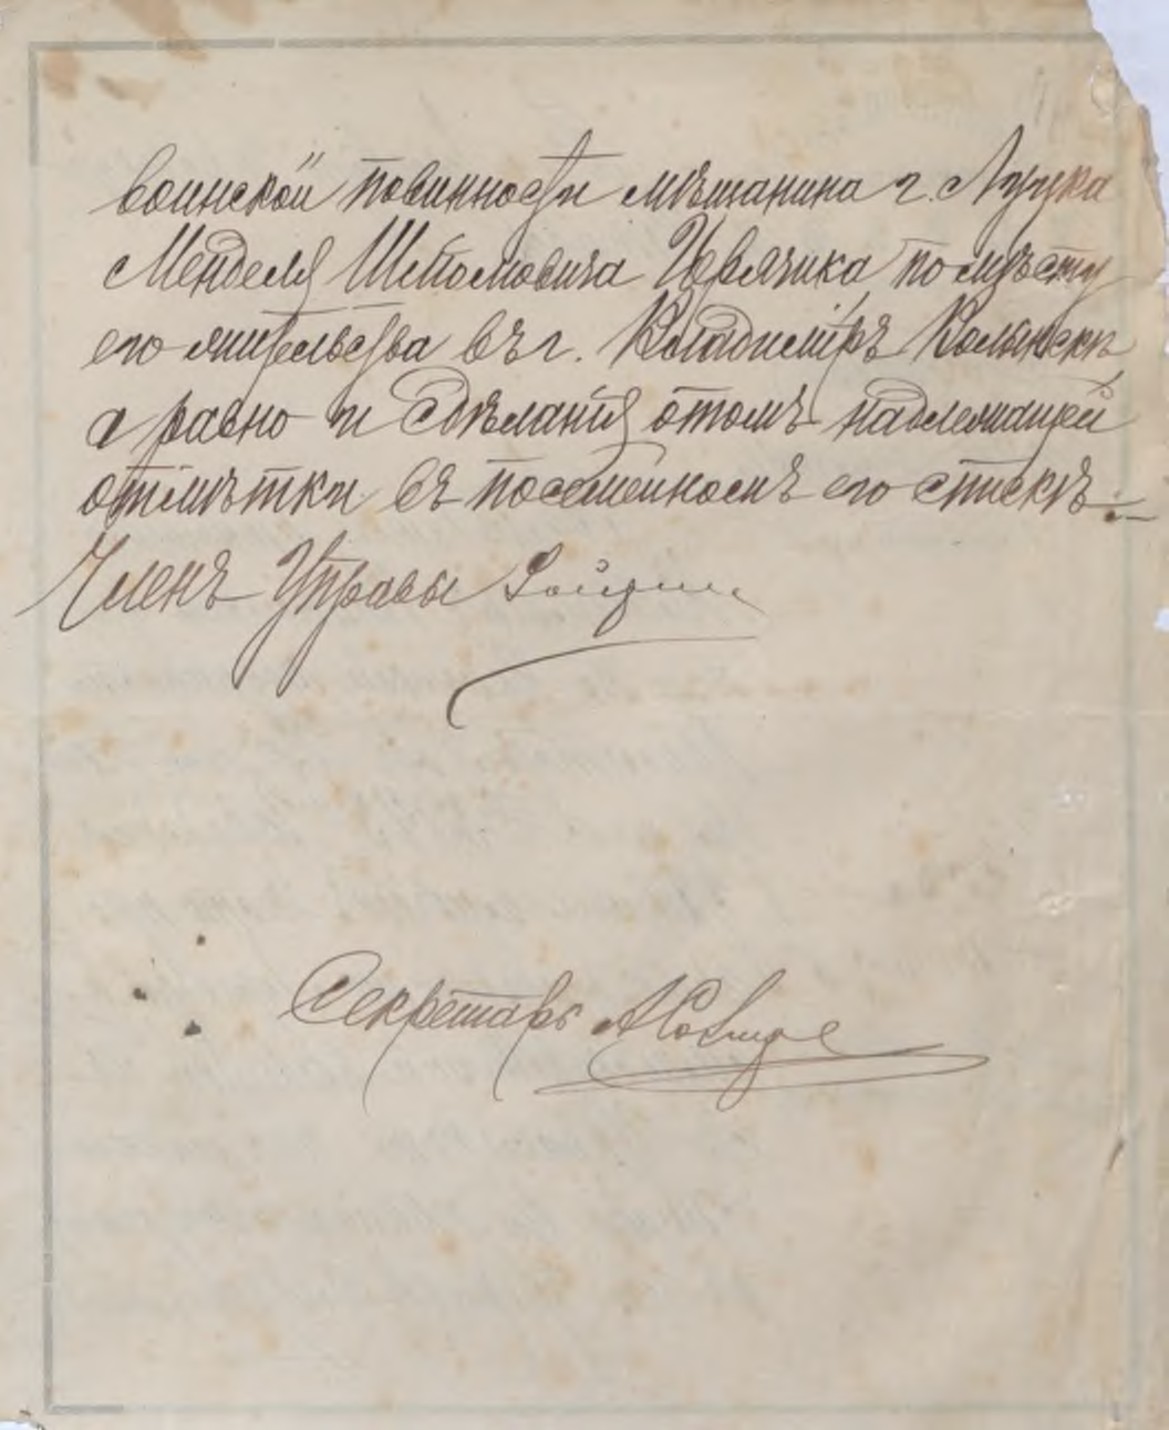 воинской повинности мѣщанина г. Луцка
Менделя Шліомовича по мѣсту
его жительства въ г. Владимірѣ Волынскѣ
а равно и сдѣланія отомъ надлежащей
отмѣтки въ посемейномъ его спискѣ.
Членъ Управы
Секретарь